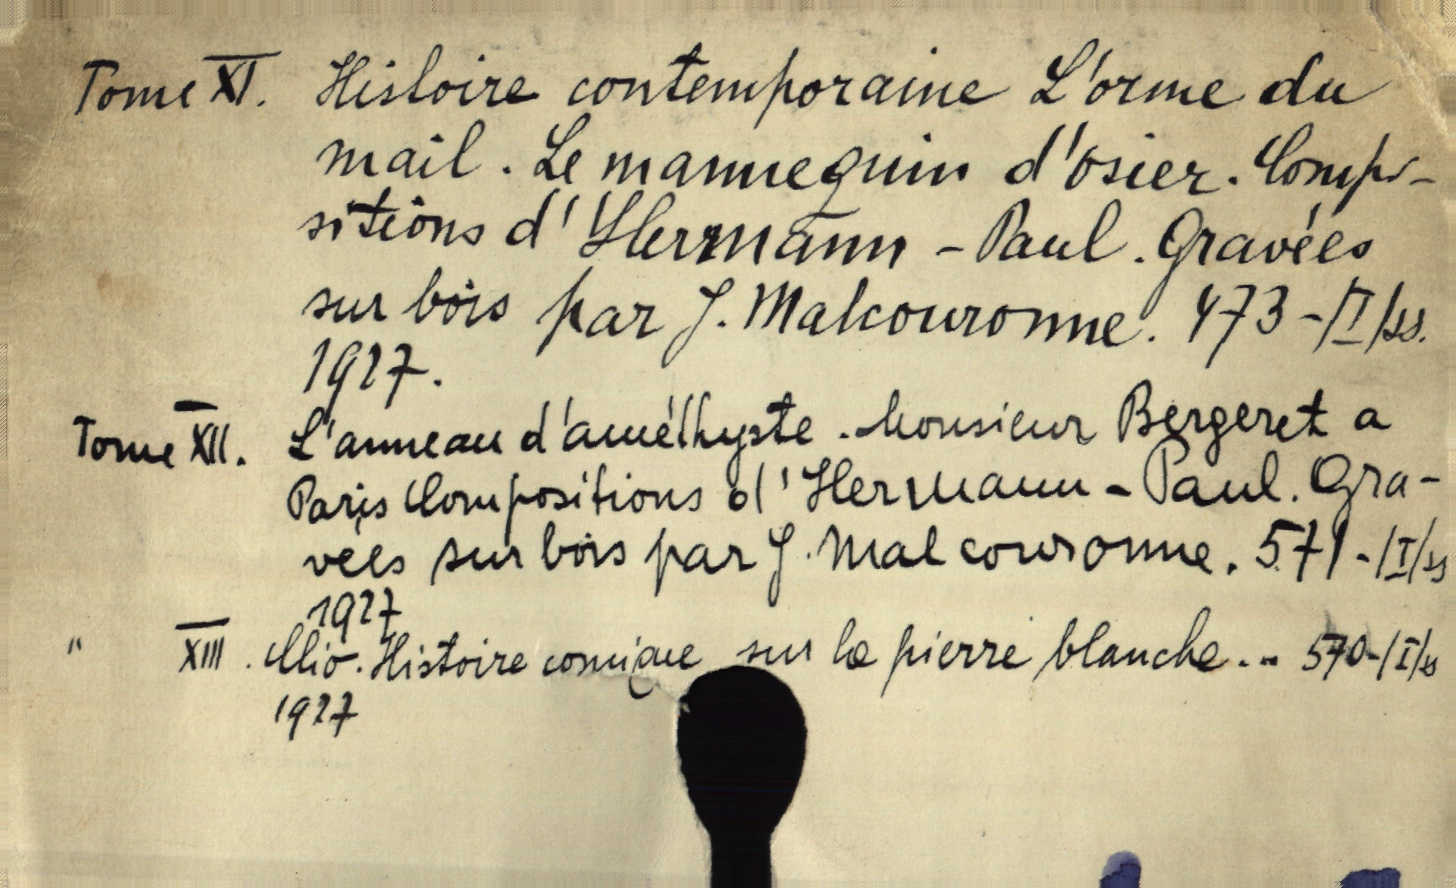 Tome XI. Histoire contemporaine L'orme du
mail. Le mannequin d'osier. Compo-
sitions d'Hermann - Paul. Gravées
sur bois par J. Malcouronne. 473-/I/ss.
1927.
Tome XII. L'anneau d'améthyste. Monsieur Bergeret a
Paris Compositions d'Hermann - Paul. Gra-
vées sur bois par J. Malcouronne. 571-/I/ss
1927
" XIII. Clio. Histoire comique sur la pierre blanche... 570-/I/ss
1927